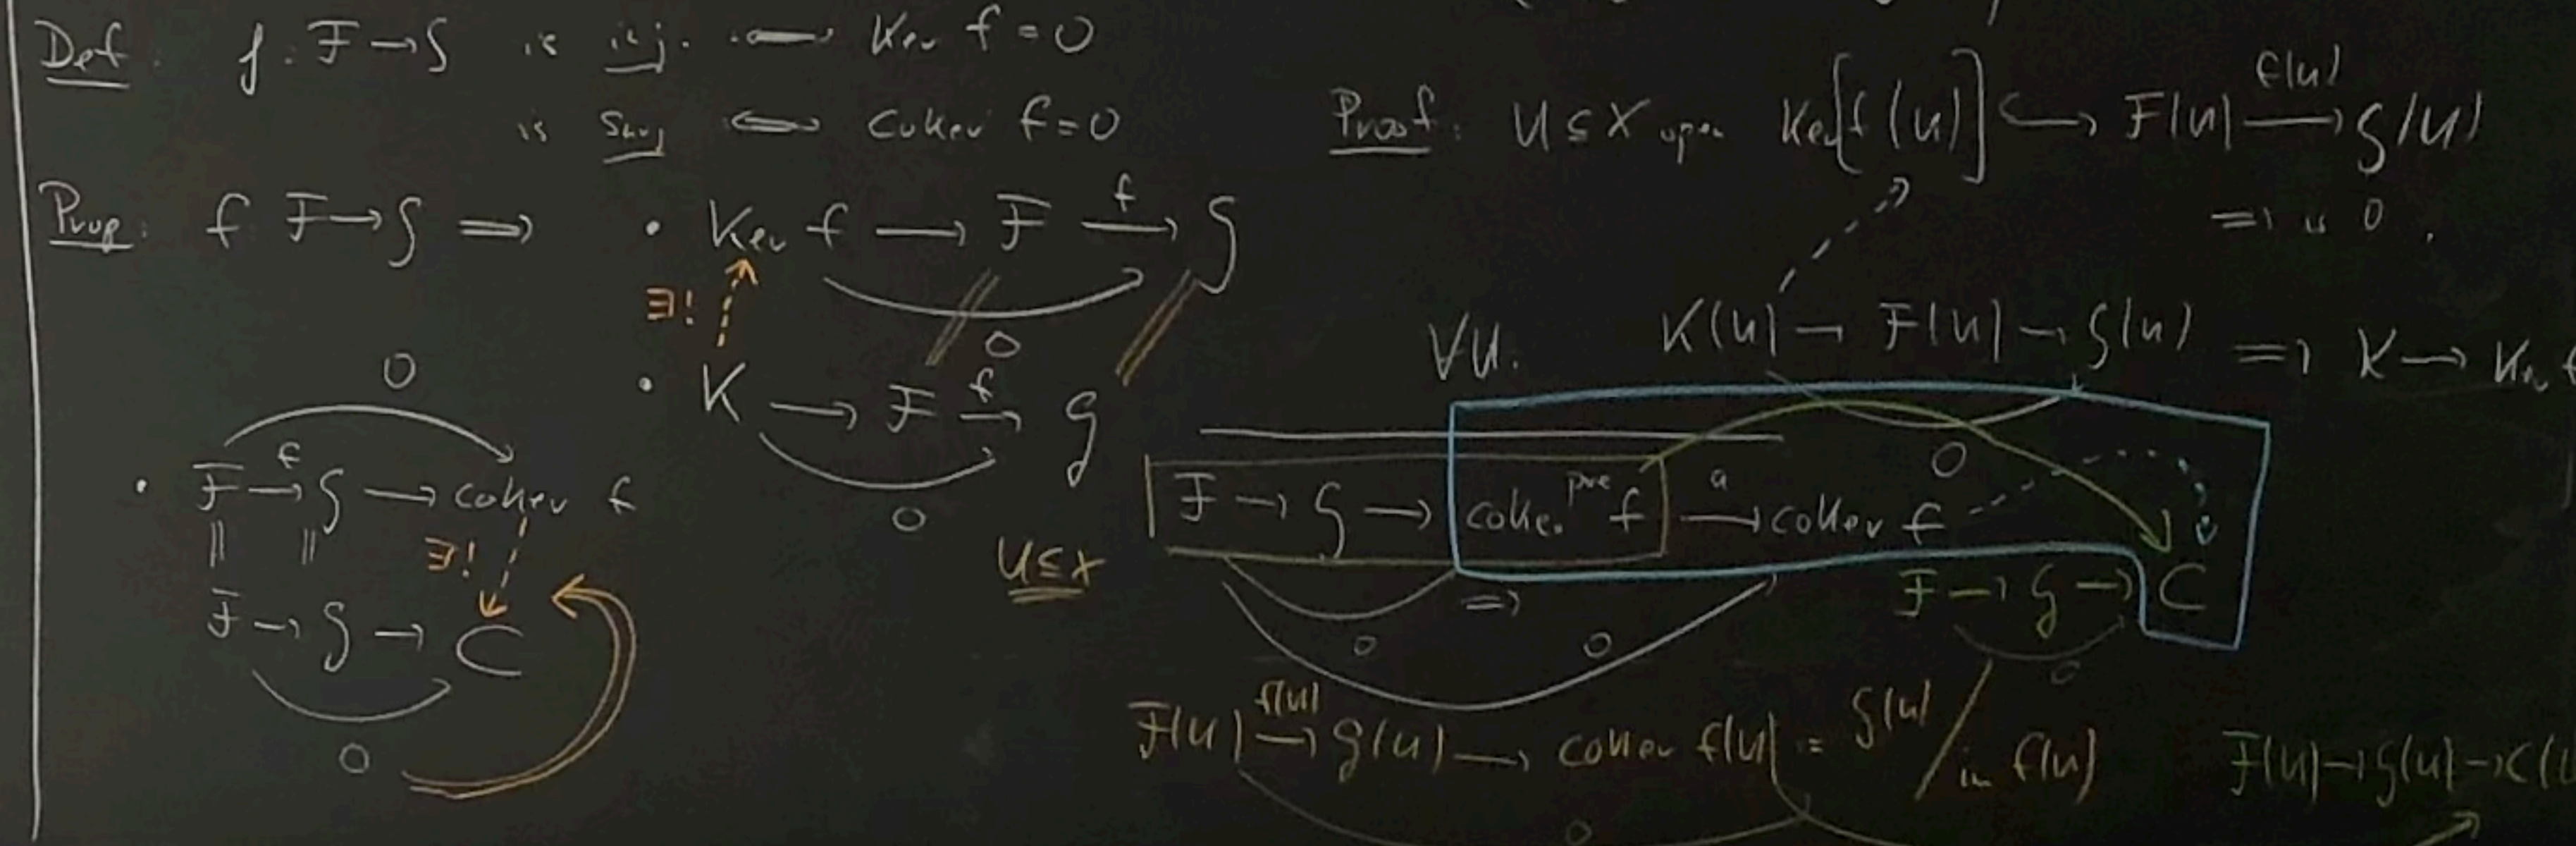 Def. f: F → G is inj. ⟺ Ker f = 0
is surj ⟺ coker f = 0
Prop: f F → G ⟹ • Ker f → F →f G
0
∃!
• K →f F → G
0
0
• F →f G → coker f
|| || ∃!
F → G → C
0
Proof: U ⊆ X open Ker[f(U)] ↪ F(U) →f(U) G(U)
⟹ is 0.
∀U. K(U) → F(U) → G(U) ⟹ K → Ker f
0
F → G → coker^pre f →a coker f
U ⊆ X
⟹
F → G → C
0 0 0
F(U) →f(U) G(U) → coker f(U) = G(U) / im f(U)
0
F(U) → G(U) → C(U